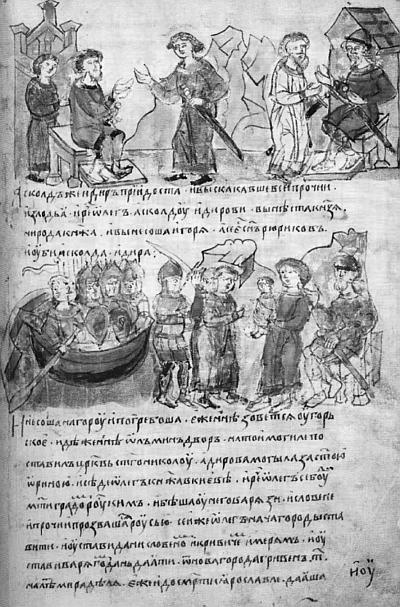 Асколд же и диръ приидоста. и выскакавше вси прочии.
из лодьа. и рⷱ҇е ѡлегъ асколдоу и дирови. вы нѣста кн҃зѧ.
ни рода кнѧжа. и вынесоша игорѧ. а се есть сн҃ъ рюриковъ.
и оубиша асколда и дира.
И несоша на гороу и погребоша. еже н҃нѣ зоветсѧ оугорь
ское. идѣже н҃нѣ ѡлъминъ дворъ. на тои могилѣ по
ставилъ цр҃квь ст҃го николоу. а дирова могыла за ст҃ою
ѡриною. и сѣде ѡлегъ кнѧжа в киевѣ. и рⷱ҇е ѡлегъ се боуди
мт҃и градоⷨ роускимъ. и бѣша оу него варѧзи. и словене
и прочии прозвашасѧ роусью. се же ѡлегъ нача городы ста
вити. и оустави дани словеноⷨ и кривичеⷨ и мерѧмъ. и оу
стави варѧгоⷨ дань даѧти. ѿ новагорода гривенъ т҃
на лѣт мира дѣлѧ. еже и до смерти ѧрославлѣ даꙗша